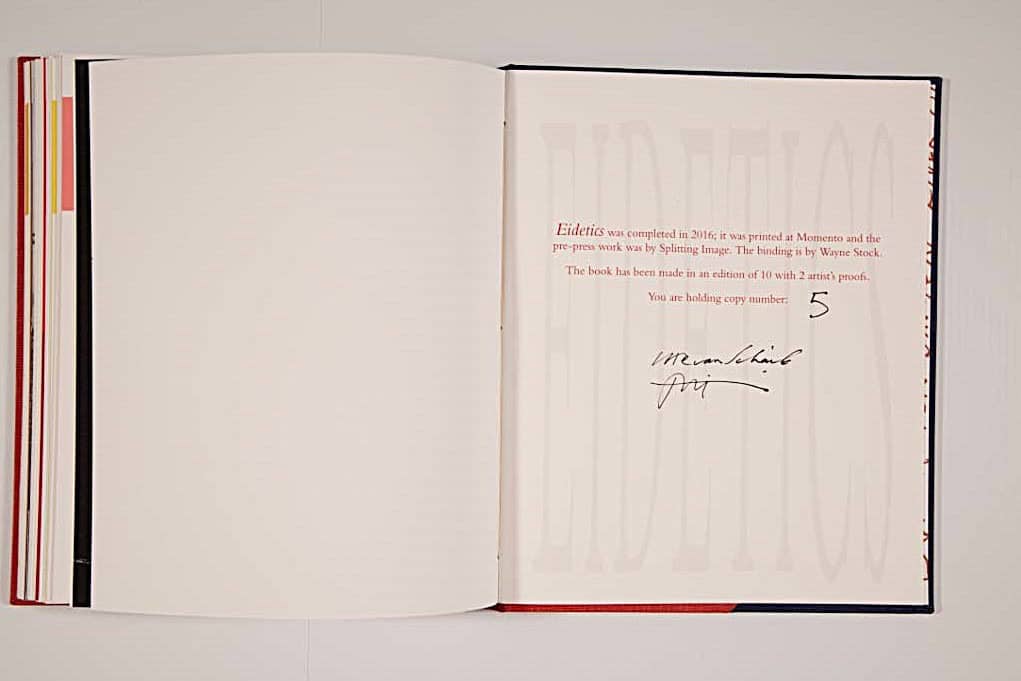 EIDETICS
Eidetics was completed in 2016; it was printed at Momento and the
pre-press work was by Splitting Image. The binding is by Wayne Stock.
The book has been made in an edition of 10 with 2 artist's proofs.
You are holding copy number: 5